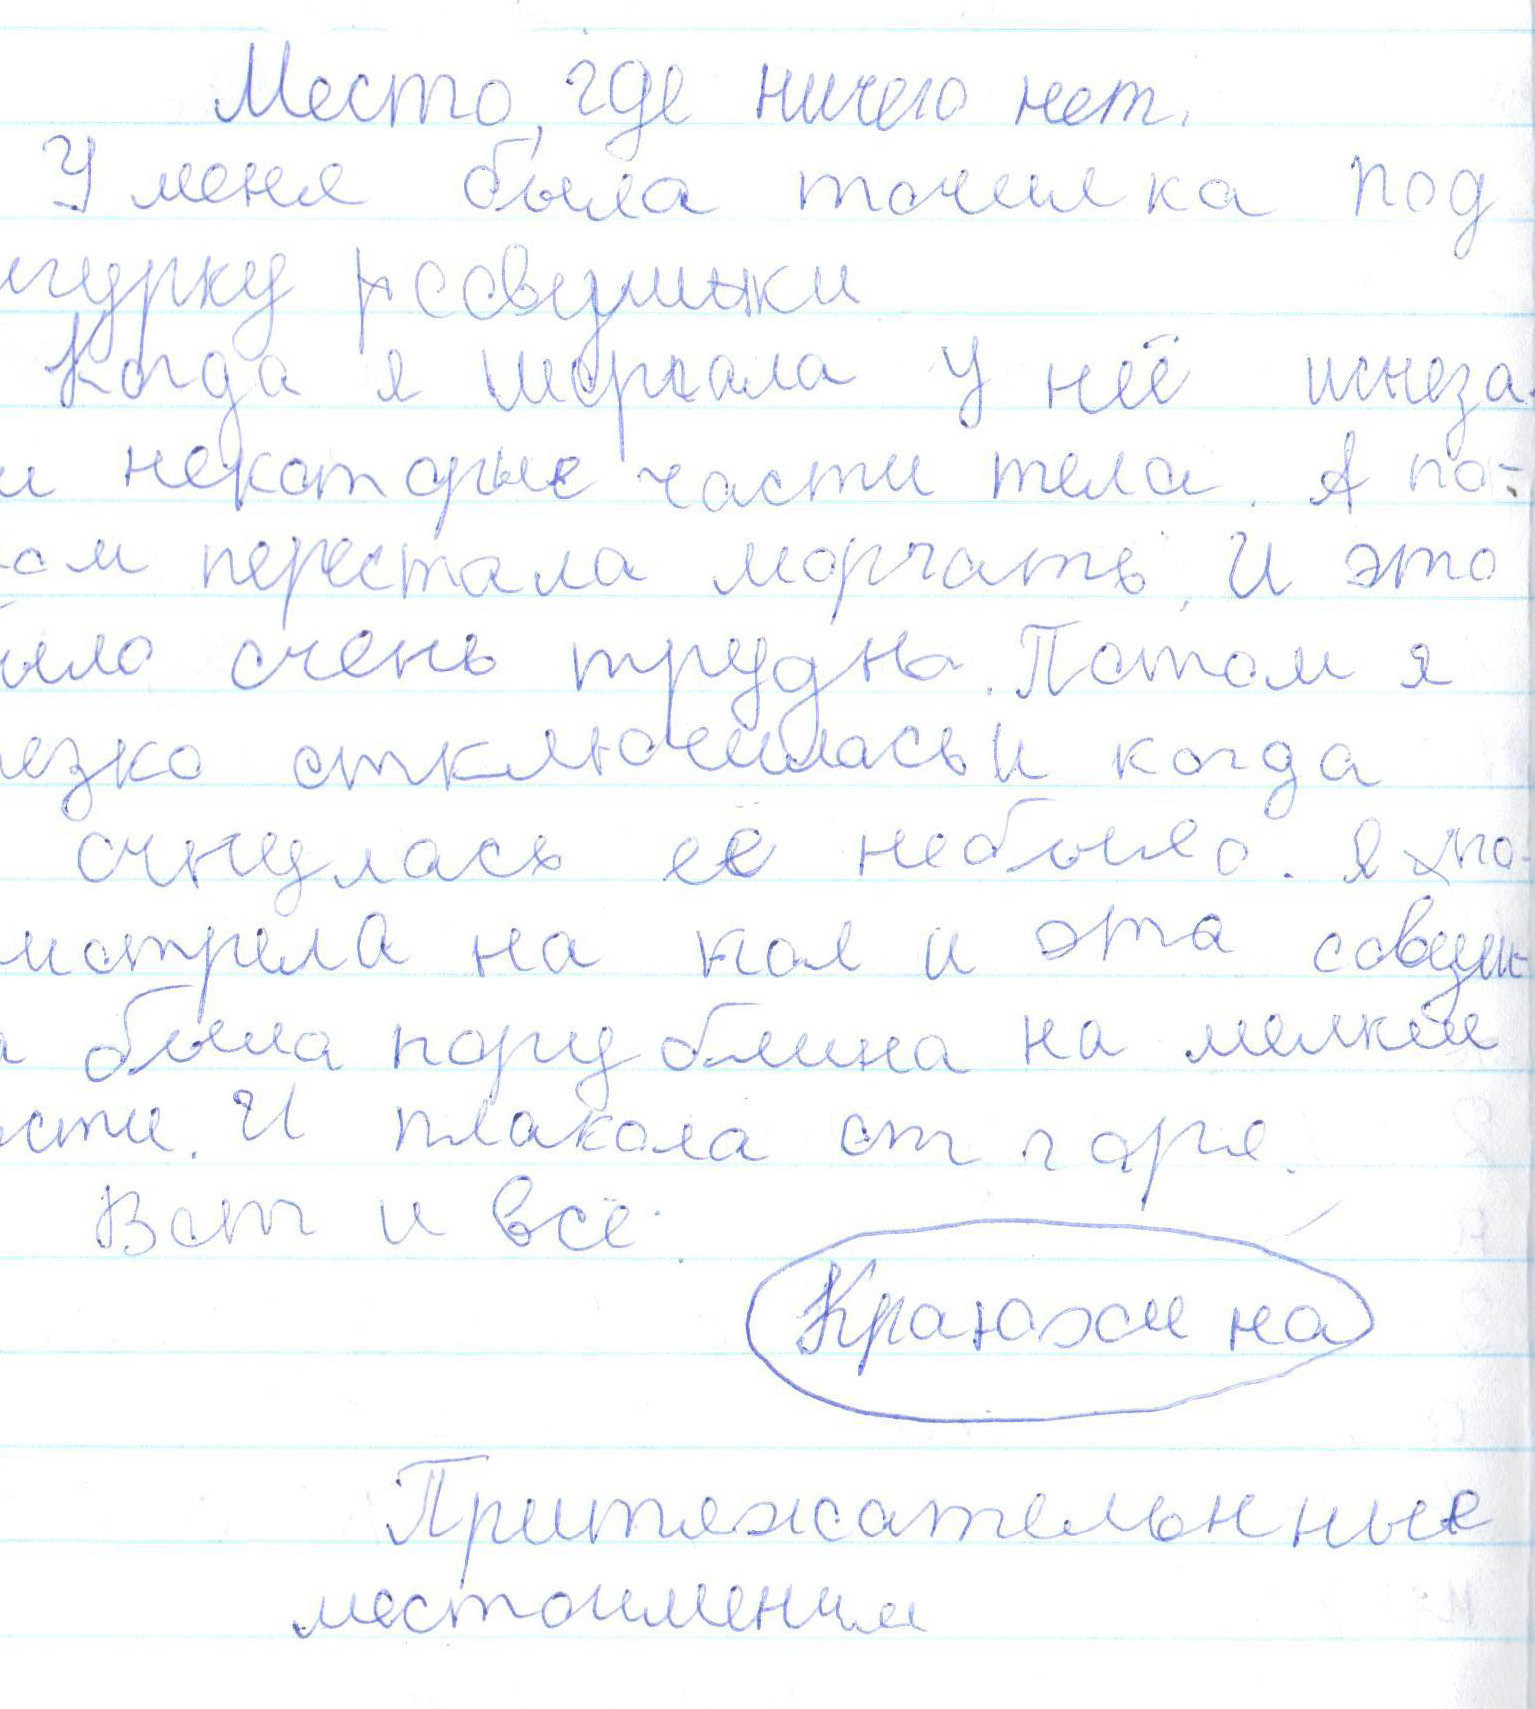 Место, где ничего нет.
У меня была точилка под
игурку рсовушыки
Когда я шоргала у неё исчеза-
и некоторые части тела. А по-
ом перестала моргчать. И это
ыло очень трудно. Потом я
езко отключилась и когда
очнулась её небыло. Я по-
мотрела на пол и эта совуш-
а была порублина на мелкие
сти. И плакола от горя.
Вот и всё.
Краюхина
Притяжательнные
местоимения